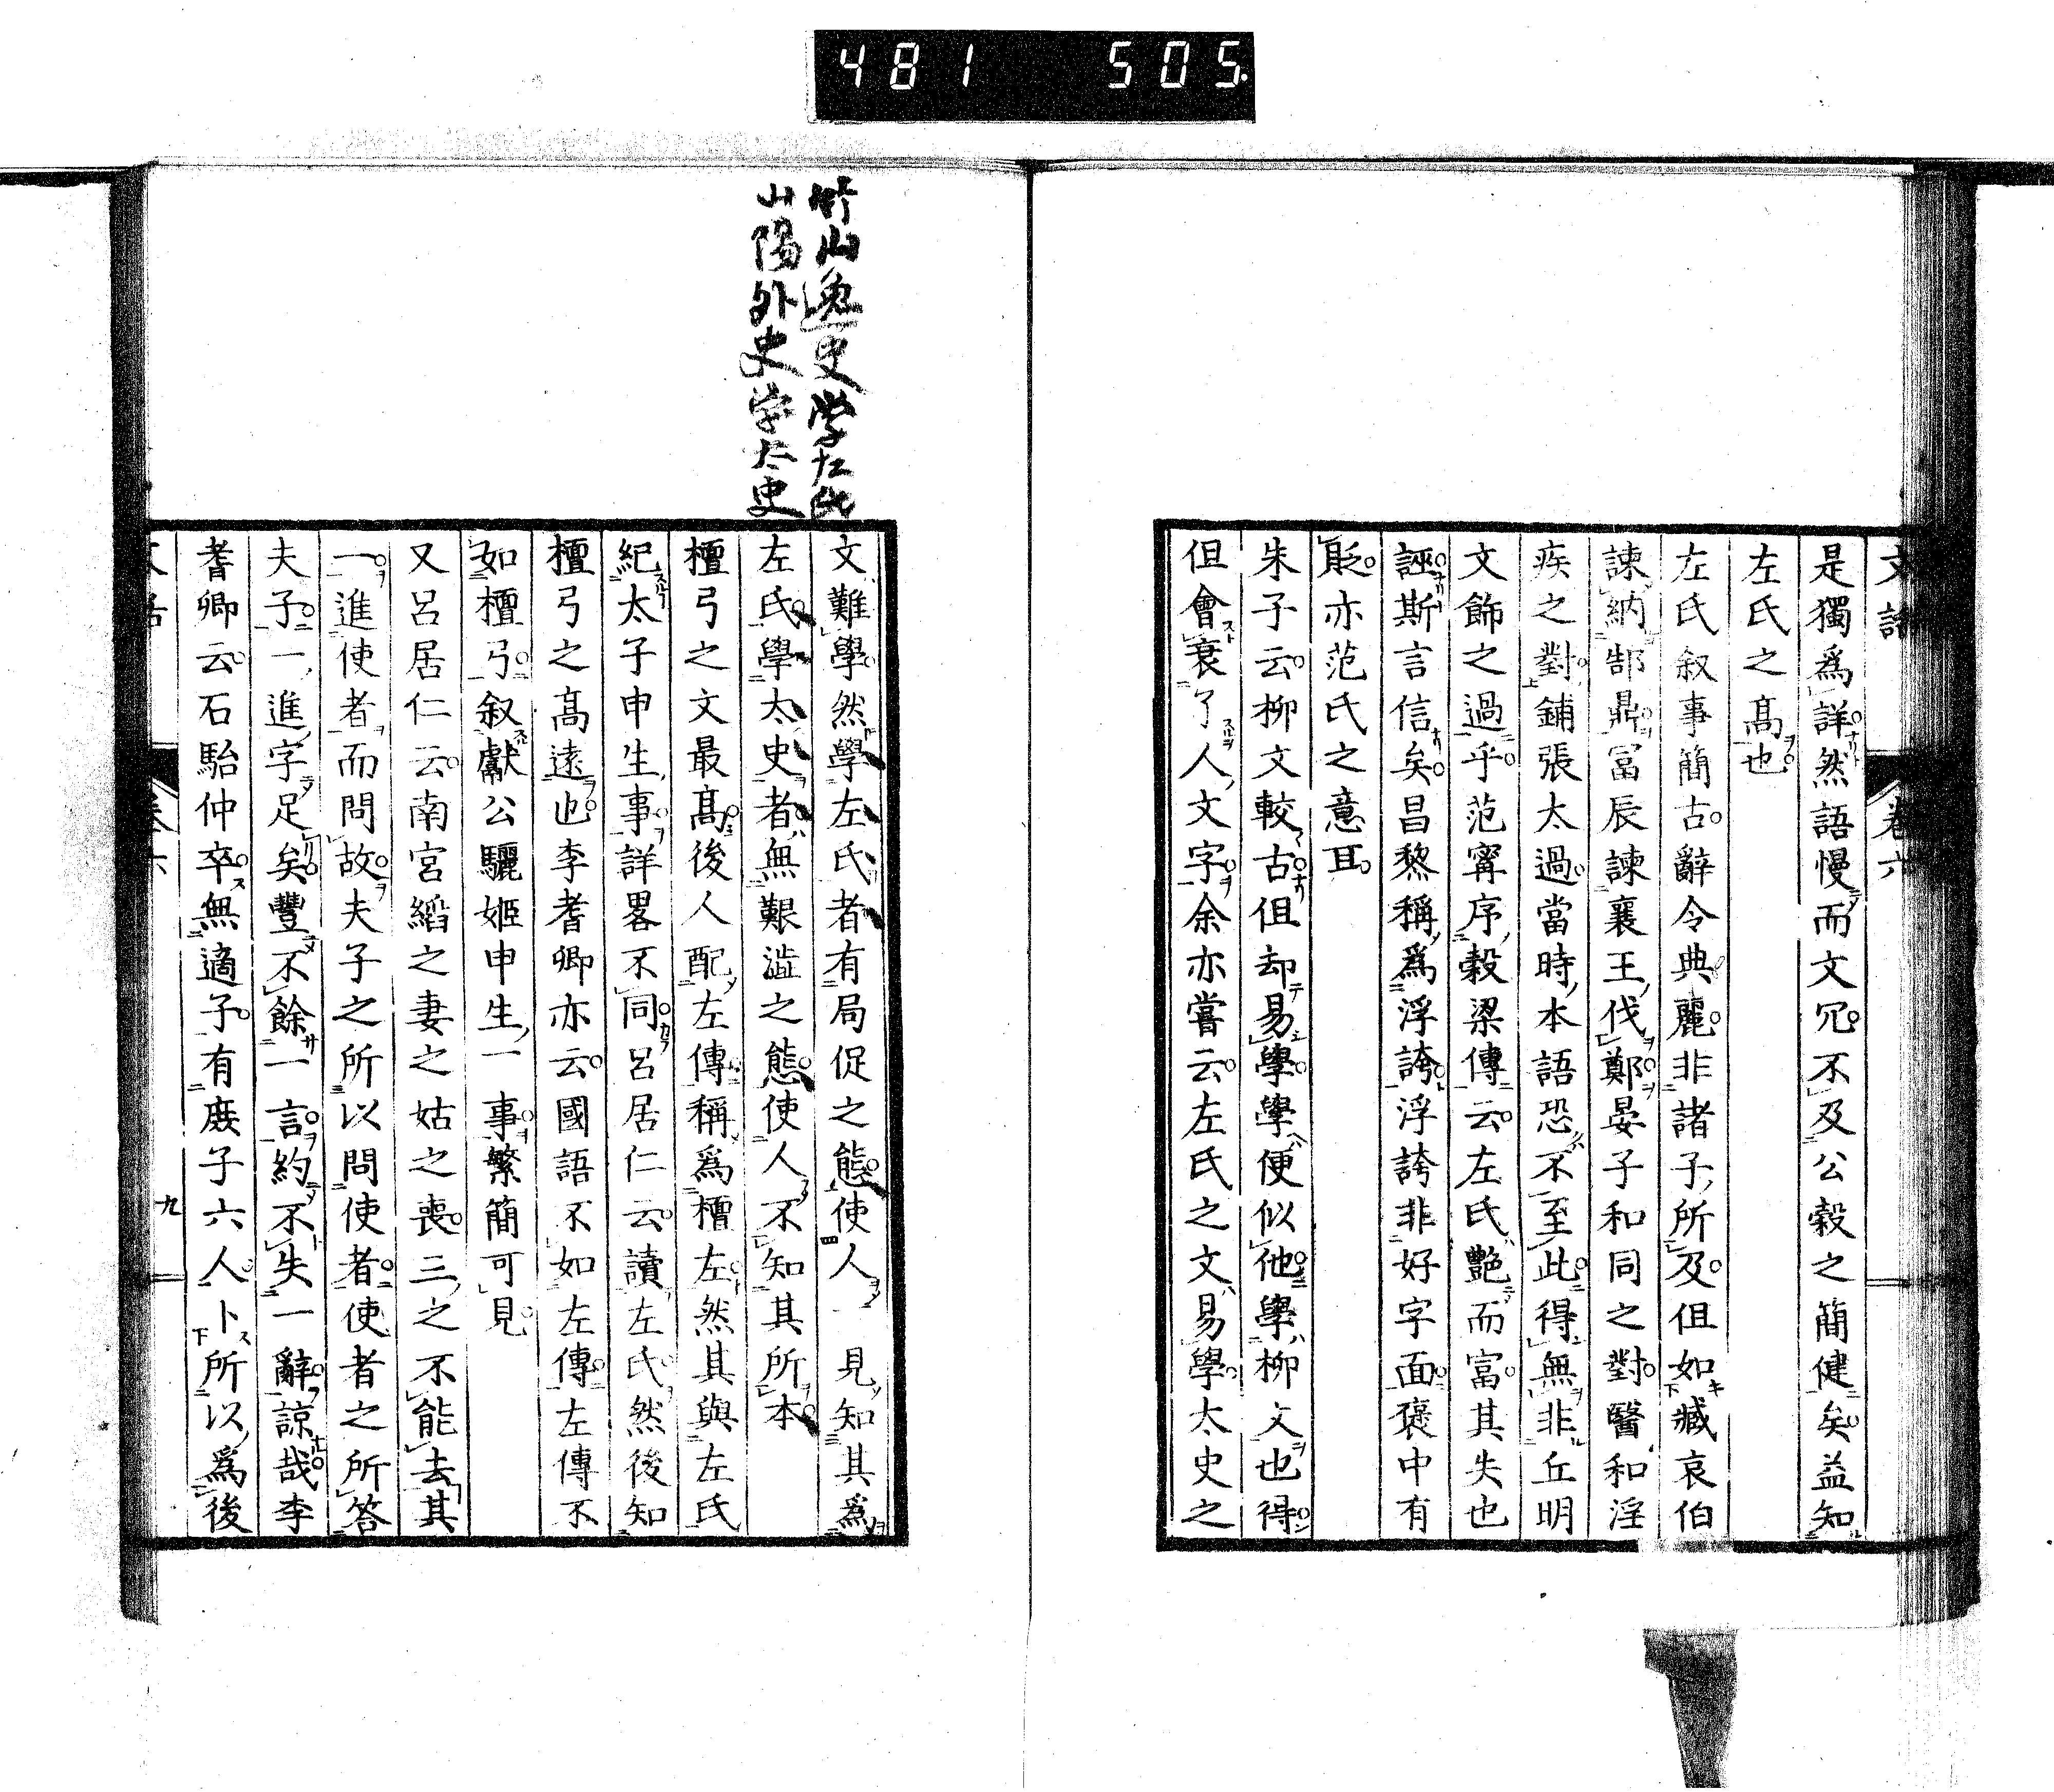 481 505
文話 卷六
是獨爲詳然語慢而文冗不及公穀之簡健矣益知
左氏之髙也
左氏叙事簡古辭令典麗非諸子所及但如臧哀伯
諫納郜鼎富辰諫襄王伐鄭晏子和同之對醫和淫
疾之對鋪張太過當時本語恐不至此得無非丘明
文飾之過乎范甯序穀梁傳云左氏艷而富其失也
誣斯言信矣昌黎稱爲浮誇浮誇非好字面褒中有
貶亦范氏之意耳
朱子云柳文較古但却易學學便似他學柳文也得
但會衰了人文字余亦嘗云左氏之文易學太史之
竹山逸史学左氏
山陽外史学太史
文難學然學左氏者有局促之態使人一見知其爲
左氏學太史者無艱澁之態使人不知其所本
檀弓之文最髙後人配左傳稱爲檀左然其與左氏
紀太子申生事詳畧不同呂居仁云讀左氏然後知
檀弓之髙遠也李耆卿亦云國語不如左傳左傳不
如檀弓叙獻公驪姬申生一事繁簡可見
又呂居仁云南宮縚之妻之姑之喪三之不能去其
一進使者而問故夫子之所以問使者使者之所答
夫子一進字足矣豐不餘一言約不失一辭諒哉李
耆卿云石駘仲卒無適子有庶子六人卜所以爲後
九